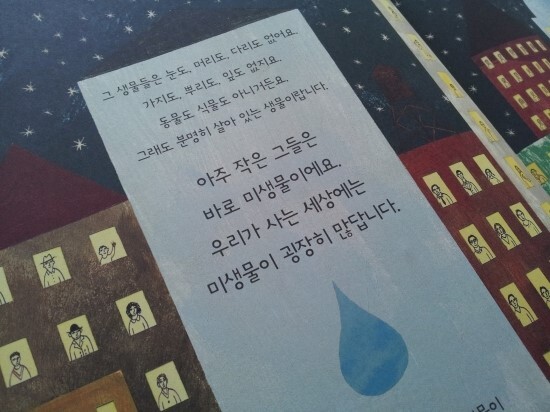 그 생물들은 눈도, 머리도, 다리도 없어요.
가지도, 뿌리도, 잎도 없지요.
동물도 식물도 아니거든요.
그래도 분명히 살아 있는 생물이랍니다.
아주 작은 그들은
바로 미생물이에요.
우리가 사는 세상에는
미생물이 굉장히 많답니다.